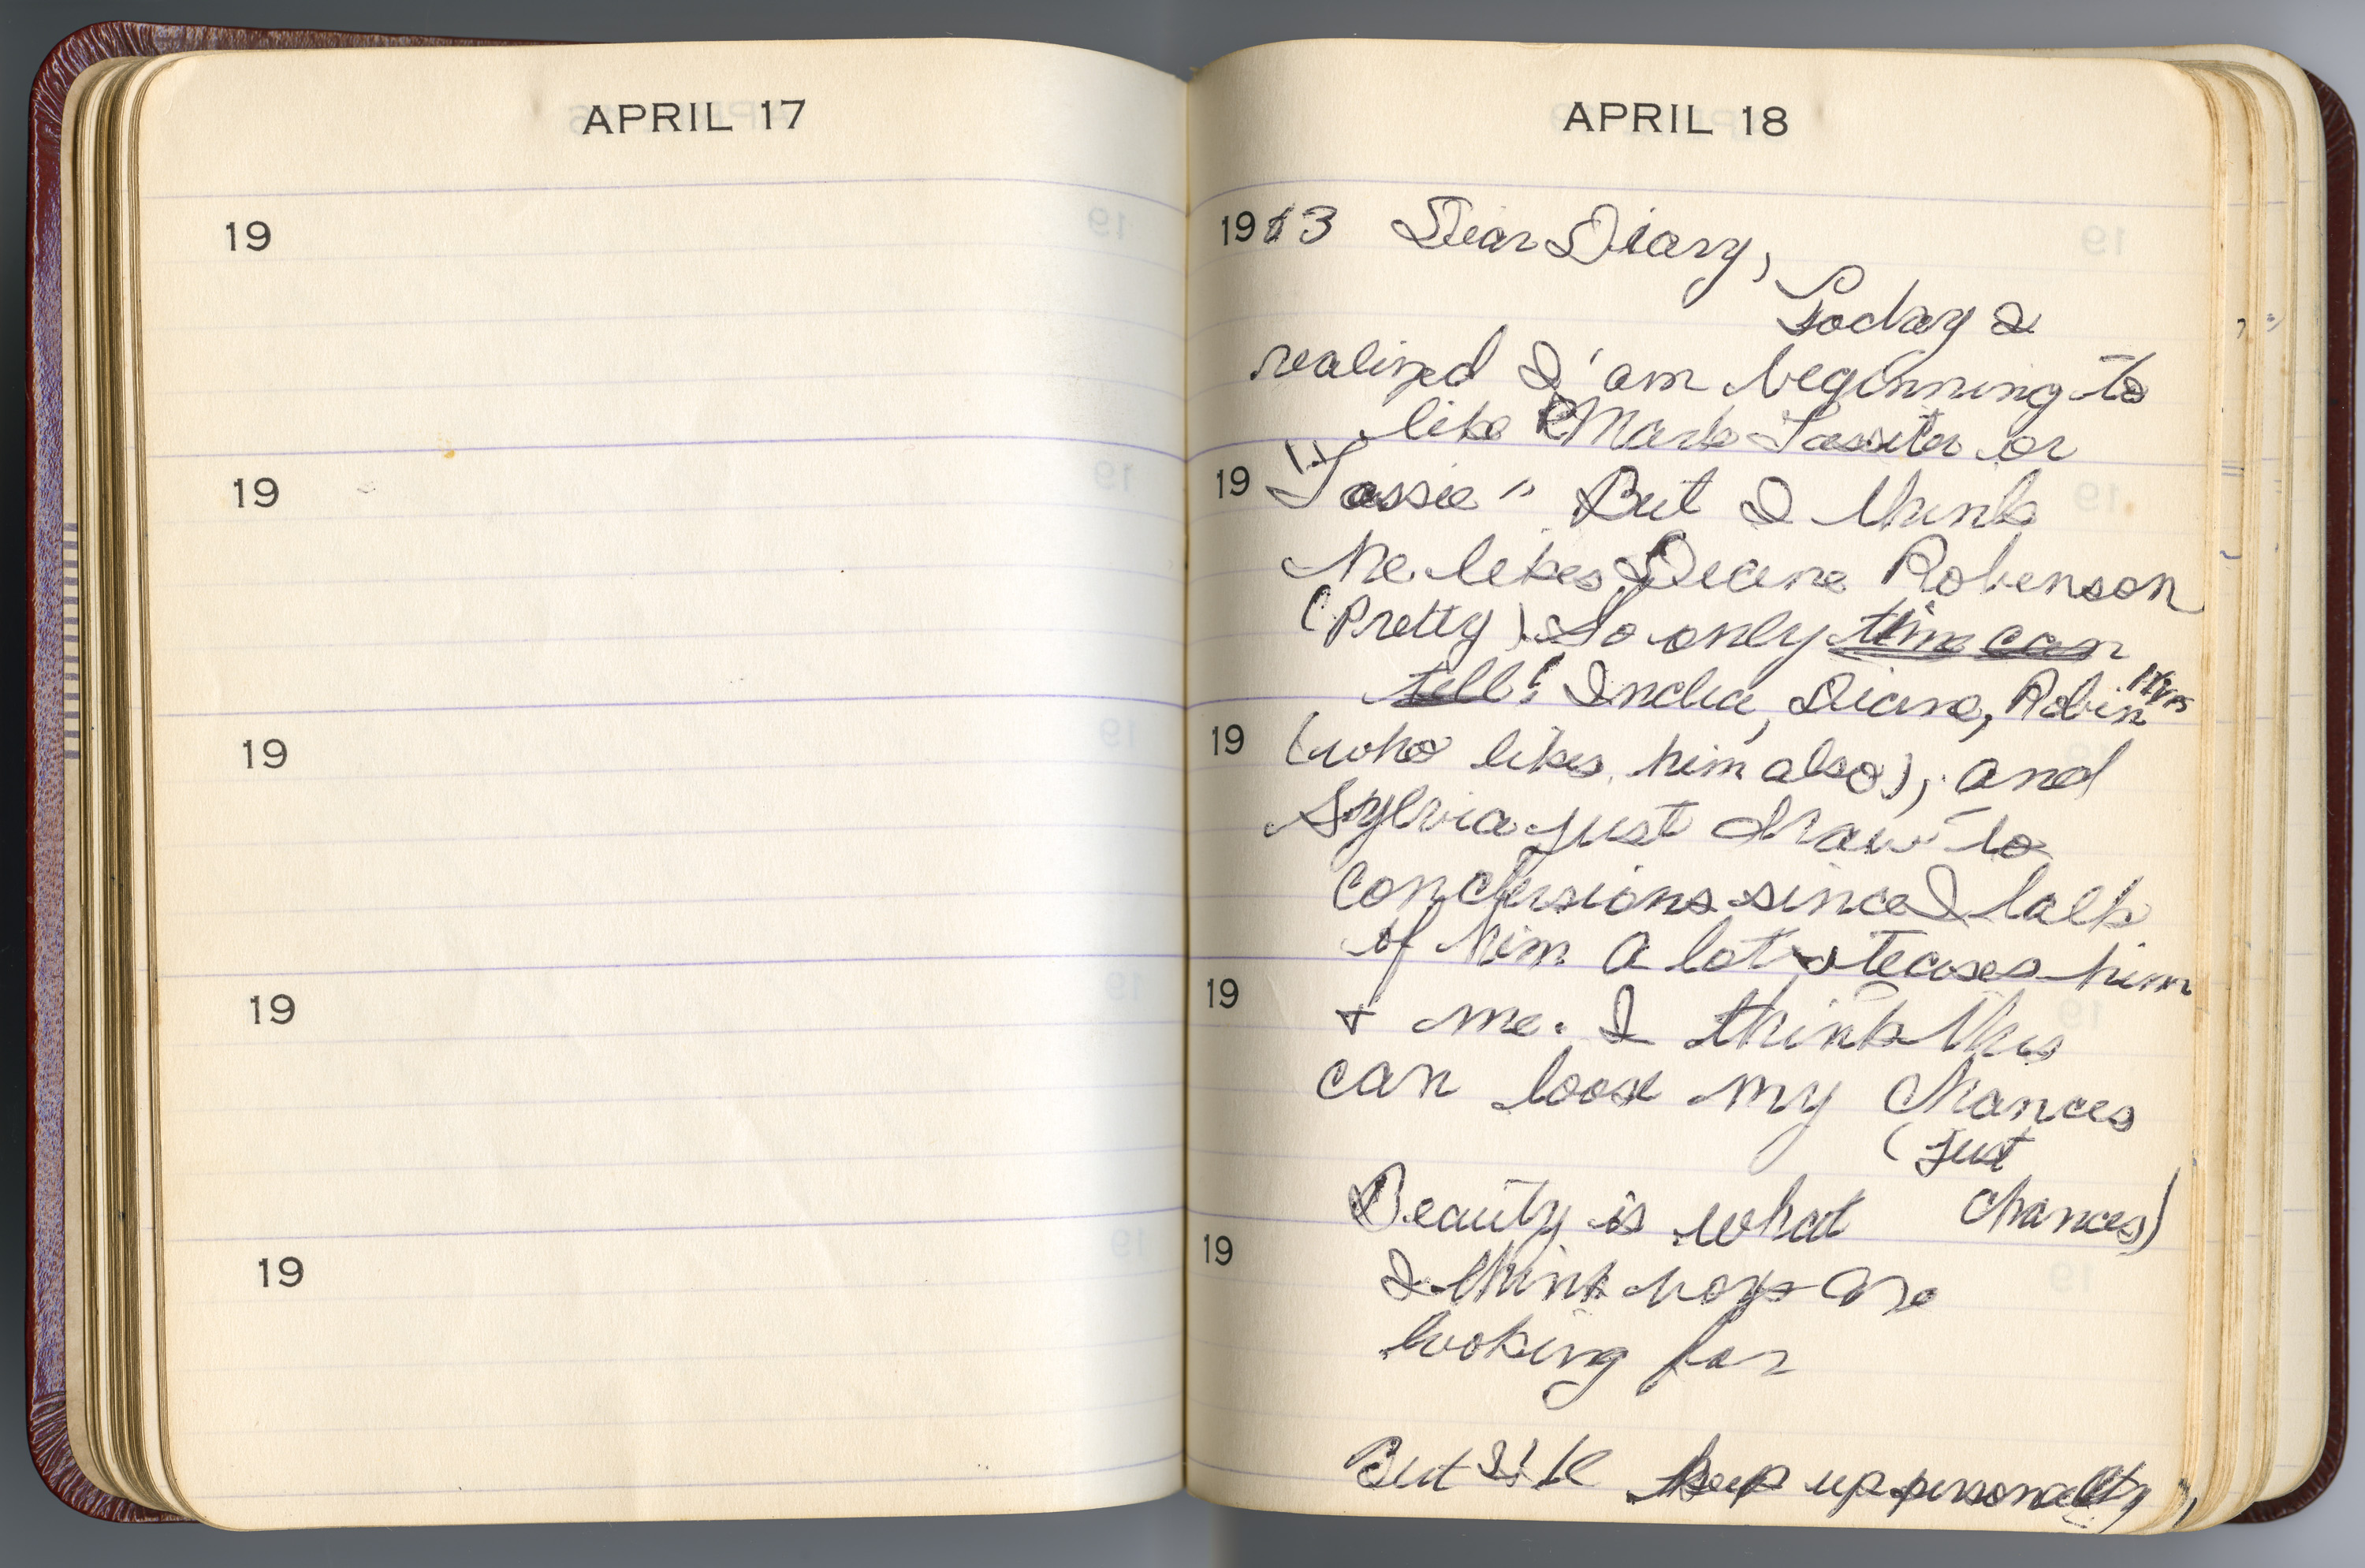 APRIL 17
19
19
19
19
19
APRIL 18
19 Dear Diary,
Today I
realized I'am beginning to
like Mark Lassiter or
19 "Lassie" But I think
he likes Diane Robenson
(Pretty) So only time can
tell! India, Diane, Robin
19 (who likes him also), and
Sylvia just draw to
conclusions since I talk
of him a lot teases him
19 + me. I think this
can loose my chances
(just
Beauty is what chances)
19
I think boys are
looking for
But I'll keep up personality